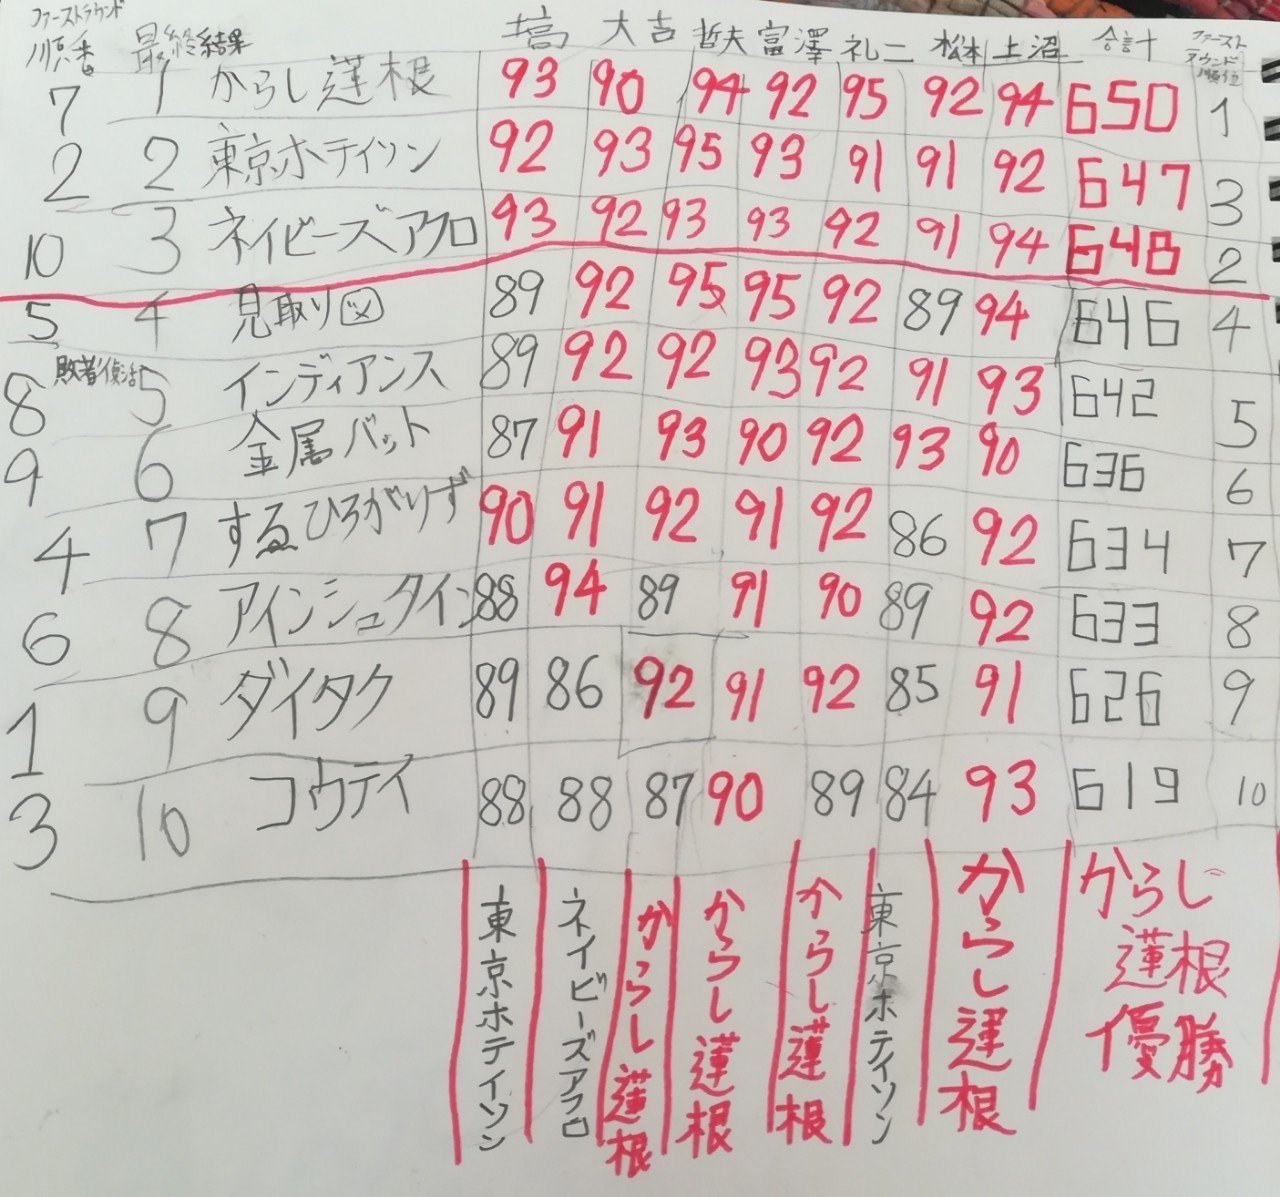 ファーストラウンド順番 最終結果 塙 大吉 哲夫 富澤 礼二 松本 上沼 合計 ファーストラウンド順位
7 1 からし蓮根 93 90 94 92 95 92 94 650 1
2 2 東京ホテイソン 92 93 95 93 91 91 92 647 3
10 3 ネイビーズアフロ 93 92 93 93 92 91 94 648 2
5 4 見取り図 89 92 95 95 92 89 94 646 4
8 敗者復活 5 インディアンス 89 92 92 93 92 91 93 642 5
9 6 金属バット 87 91 93 90 92 93 90 636 6
4 7 すゑひろがりず 90 91 92 91 92 86 92 634 7
6 8 アインシュタイン 88 94 89 91 90 89 92 633 8
1 9 ダイタク 89 86 92 91 92 85 91 626 9
3 10 コウテイ 88 88 87 90 89 84 93 619 10
東京ホテイソン
ネイビーズアフロ
からし蓮根
からし蓮根
からし蓮根
東京ホテイソン
からし蓮根
からし
蓮根
優勝